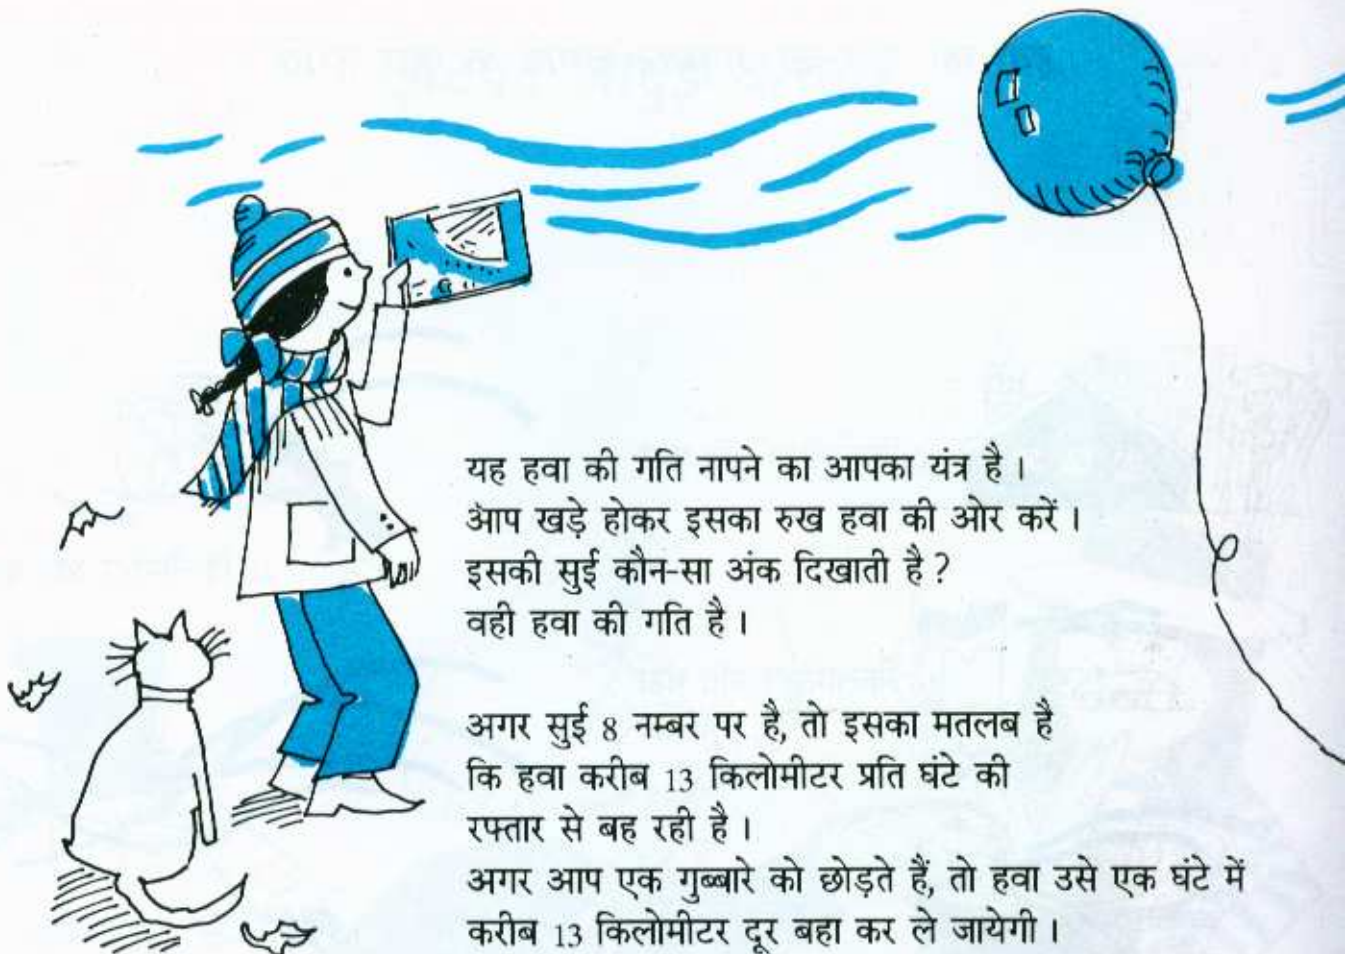 यह हवा की गति नापने का आपका यंत्र है ।
आप खड़े होकर इसका रुख हवा की ओर करें ।
इसकी सुई कौन-सा अंक दिखाती है ?
वही हवा की गति है ।
अगर सुई 8 नम्बर पर है, तो इसका मतलब है
कि हवा करीब 13 किलोमीटर प्रति घंटे की
रफ्तार से बह रही है ।
अगर आप एक गुब्बारे को छोड़ते हैं, तो हवा उसे एक घंटे में
करीब 13 किलोमीटर दूर बहा कर ले जायेगी ।